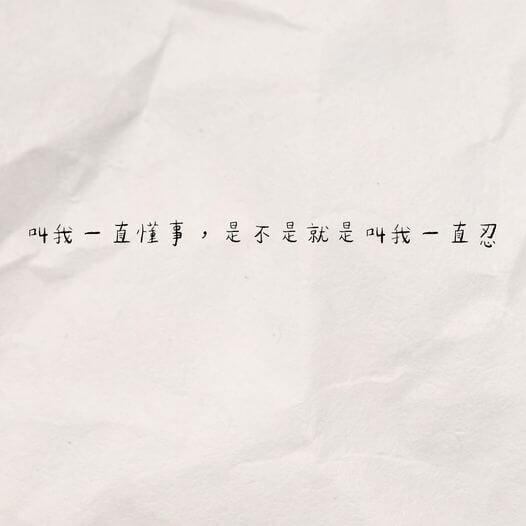 叫我一直懂事，是不是就是叫我一直忍